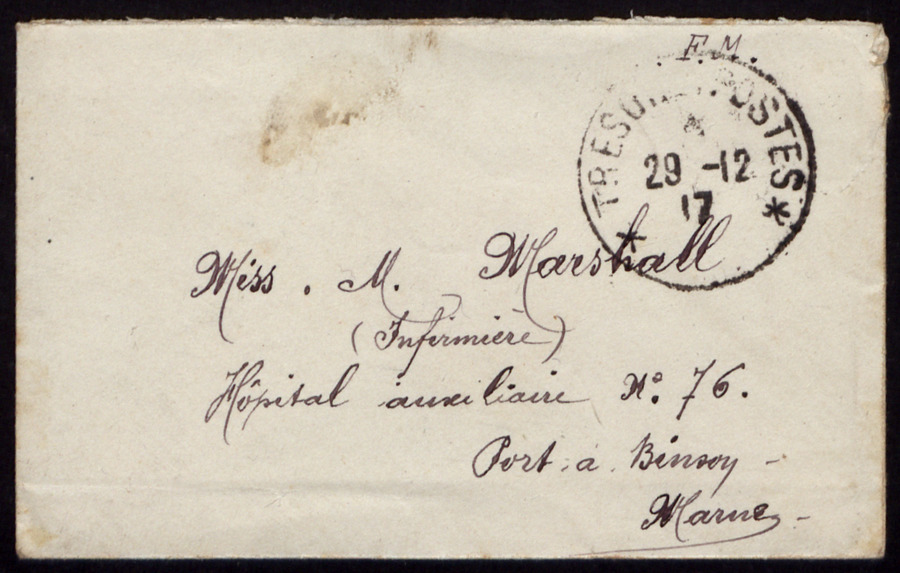 F. M.
TRESOR ET POSTES
29 -12
17
Miss . M. Marshall
(Infirmière)
Hôpital auxiliaire No. 76.
Port. à Binson -
Marne -